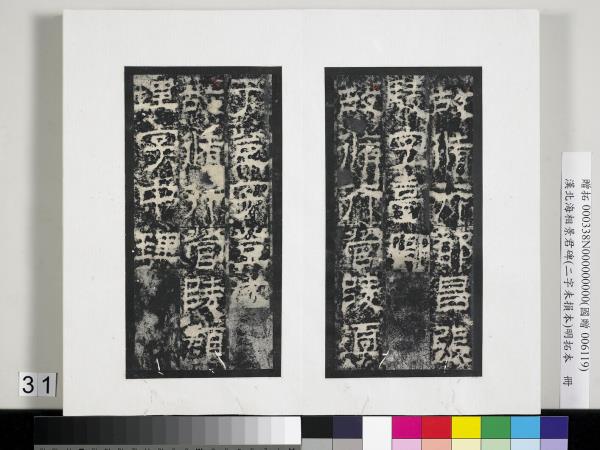 故脩行都昌張
字臺卿
故脩行營陵淳
于字登成
故脩行營陵顏
理字中理
贈拓 000338N000000000(國贈 006119)
漢北海相景君碑(二字未損本)明拓本 冊
31